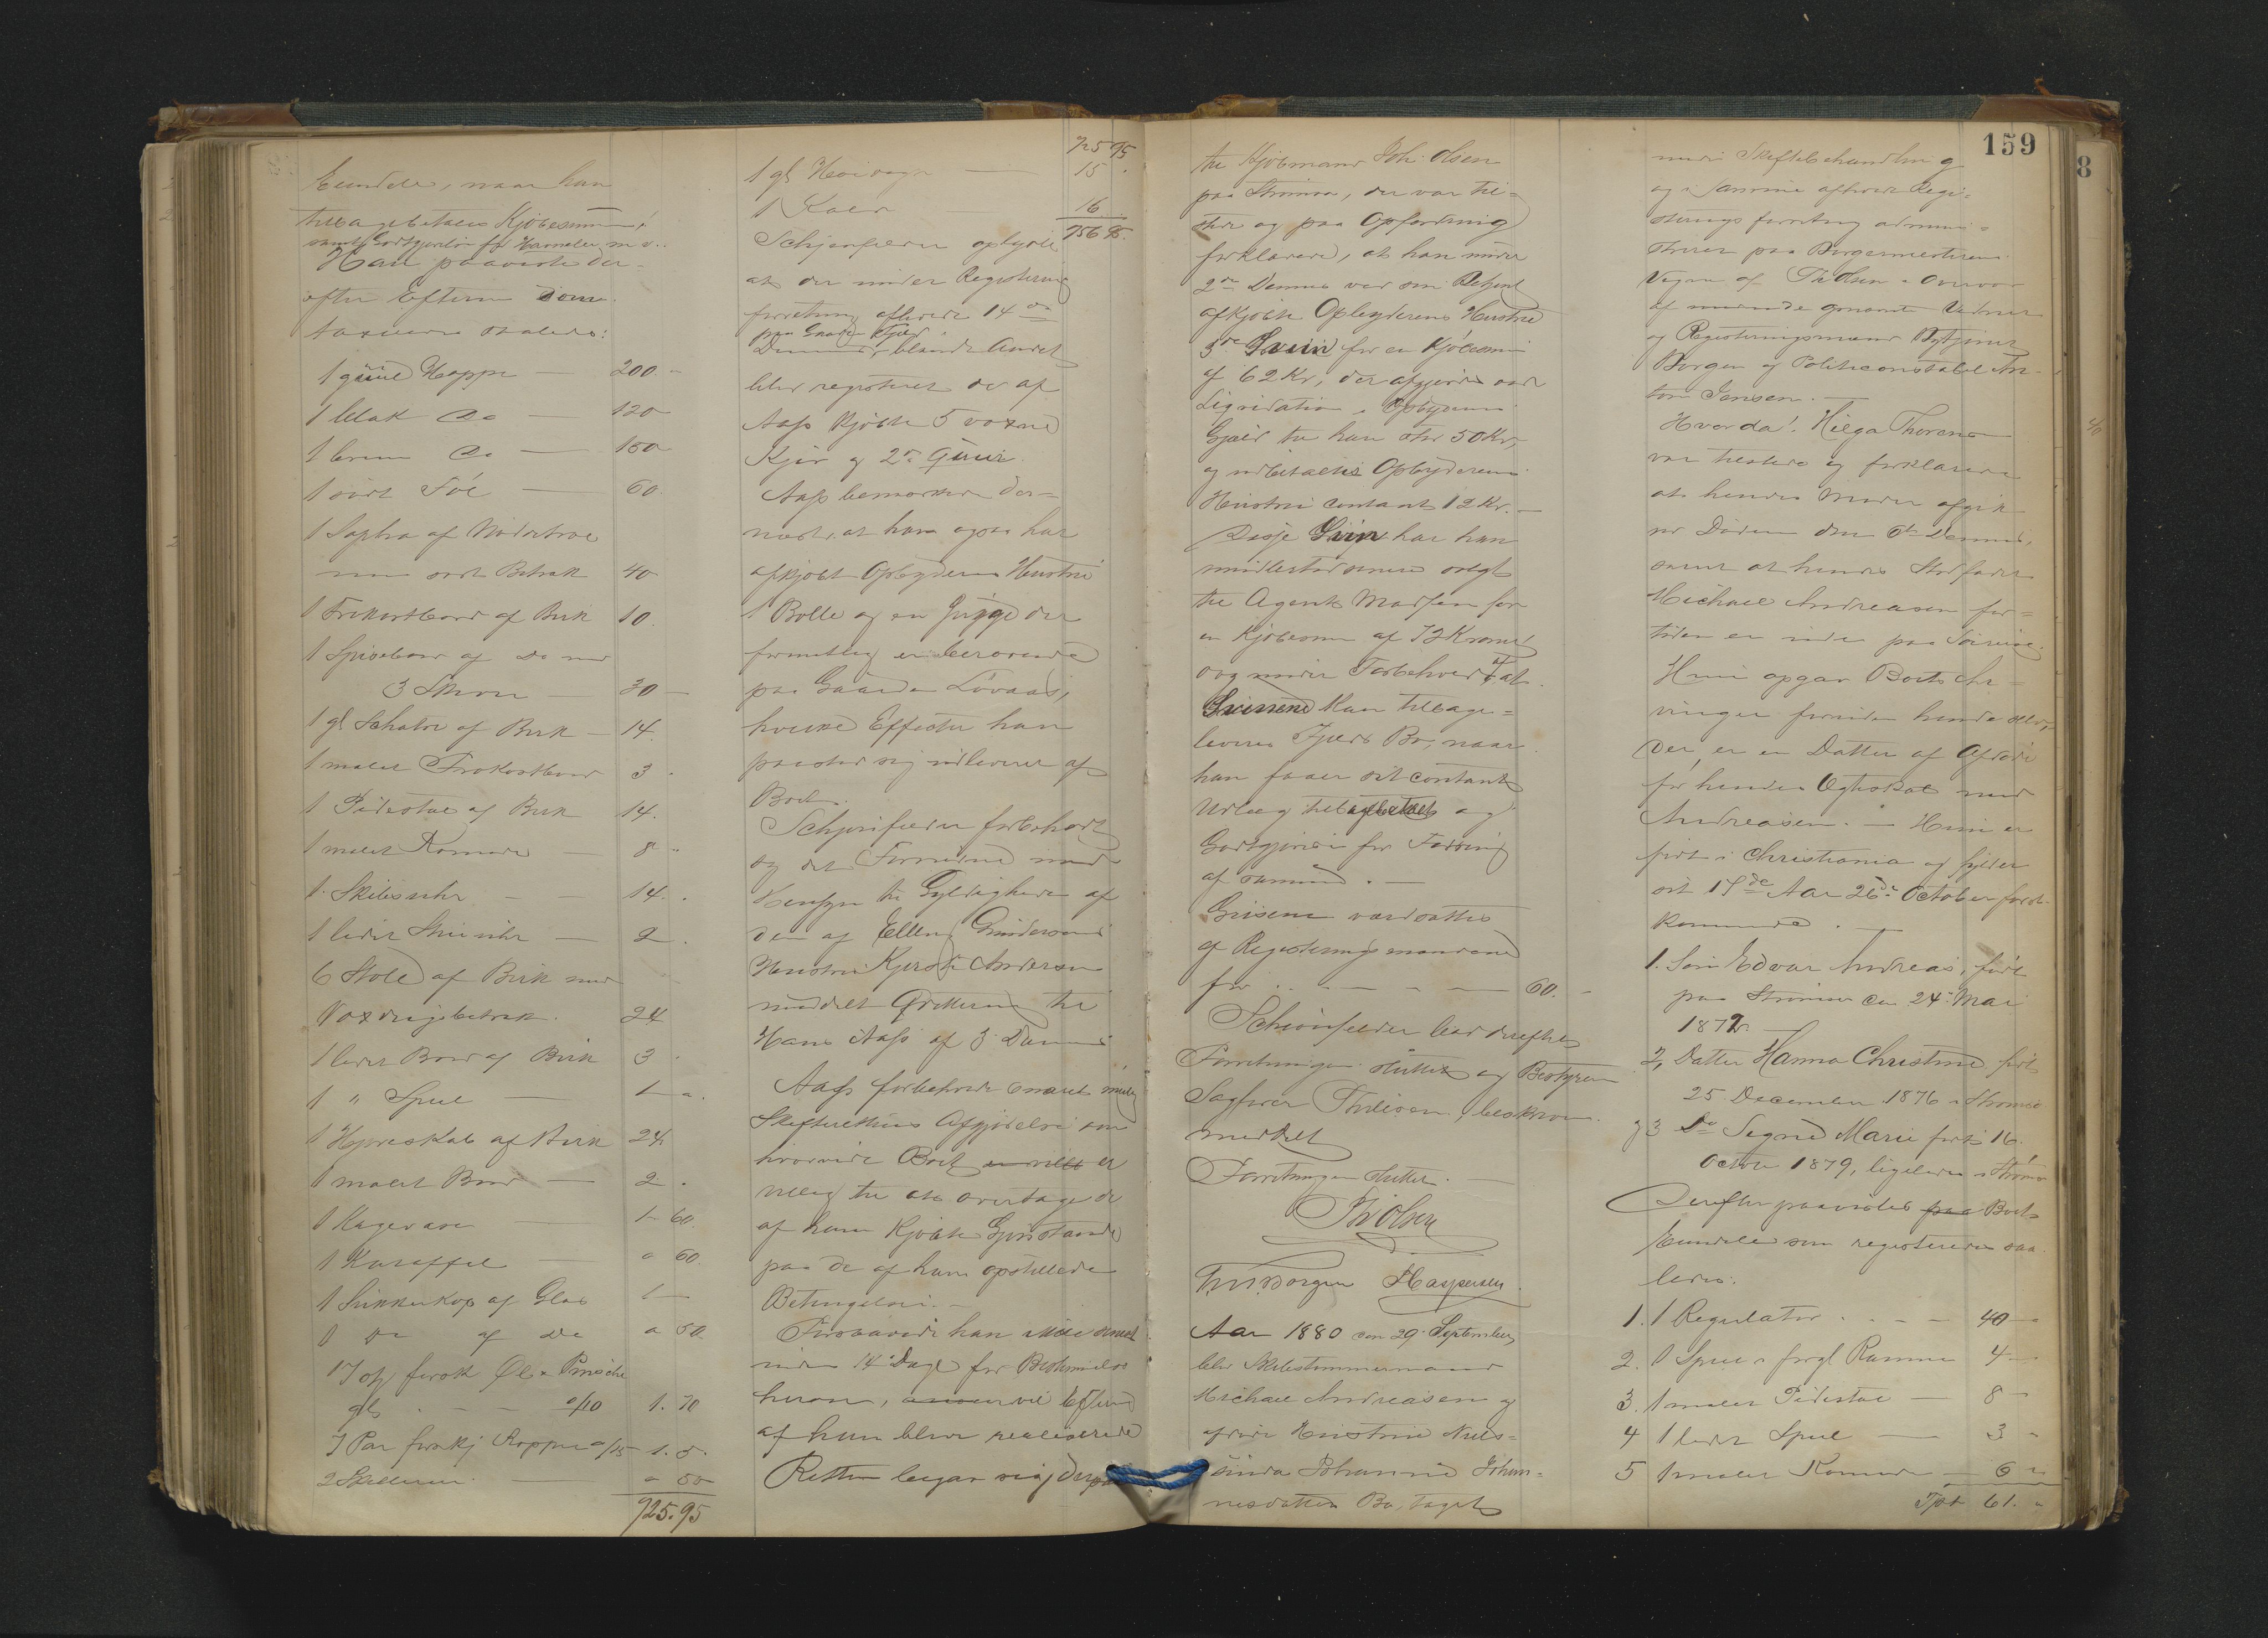 Eiendele, naar han
tilbagebetales Kjøbesummen,
samt Godtgjørelse for Havnaler m. v.
Han paaviste der-
efter Eftern som
taxeredes saaledes:
1 guul Hoppe — 200 -
1 blak do — 120
1 brun do — 150
1 sort Føl — 60.
1 Sopha af
med sort Betræk 40
1 Frokostbord af Birk 10.
1 Spisebord af do med
3 Skuver — 30 —
1 gl Schatol af Birk — 14.
1 malet Frokostbord 3.
1 Pidestal af Birk 14.
1 malet Komode — 8 "
1 Skibsuhr — 14.
1 lidet Stueuhr — 2.
6 Stole af Birk med
Voxdugsbetræk. 24
1 lidet Bord af Birk 3.
1 " Speil — 1 - ".
1 Hjørneskab af Birk 24
1 malet Bord — 2.
1 Kagevase — 1 - 60.
1 Karaffel — " 60.
1 Sukkerkop af Glas 1 —
1 do af do " 50.
17 op forsk Øl & Punsche
gls - - a/10 1. 70
7 Par forskj Kopper a/15 1. 5.
2 Skilderier. " 50
925.95
925 95
1 gl Høivogn — 15.
1 Kalv 16
956 95.
Schjønfelder oplyste
at der under Registrerings
forretning afholdt 14de
paa Fjeld
Dennes, blandt Andet
blev registreret de af
Aass kjøbte 5 voxne
Kjør og 2de Qviier.
Aass bemærkede der-
næst, at han ogsaa har
afkjøbt Opbyderens Hustru
1 Bolle og en Gryde der
formentlig er beroende
paa Gaarden Løvaas,
hvilke Effecter han
paastod sig udleveret af
Boet.
Schjønfelder forbeholdt
og det Fornødne med
Hensyn til Gyldigheden af
den af Ellen Gundersens
Hustru Kjersti Andersen
meddelt Qvittering til
Hans Aass af 3 Dennes
Aass forbeholdt snarest mulig
Skifterettens Afgjørelse om
hvorvidt Boet er
villig til at overtage de
af ham kjøbte Gjenstande
paa de af ham opstillede
Betingelser. —
Forsaavidt han ikke
inden 14 Dage før Bestemmelse
herom, vil
af ham blive realiserede
Retten begav sig derpaa
til Kjøbmand Joh. Olsen
paa Strømsø, der var til-
stede og paa Opfordring
forklarede, at han under
2den Dennes ved sin Betjent
afkjøbte Opbyderens Hustru
3de Sviin for en Kjøbesum
af 62 Kr, der afgjordes ved
Liqvidation i Opbyderens
Gjæld til ham stor 50 Kr,
og udbetaltes Opbyderens
Hustru contant 12 Kr. —
Disse Sviin har han
imidlertid senere solgt
til Agent Madsen for
en Kjøbesum af 72 Kroner
dog under Forbehold af at
Svinene kan tilbage-
leveres Fjelds Bo, naar
han faaer sit contante
Udlæg tilbagebetalt og
Godtgjørelse for Foring
af samme. —
Grisene værdsattes
af Registreringsmændene
for — — — 60. -
Schiønfelder lod derefter
Forretningen slutte og Bestyreren
Sagfører Thilesen, beskreven
meddelt
Forretningen sluttet. —
Th Olsen
Th. M. Borgen HCaspersen.
Aar 1880 den 29 September
blev Skibstømmermand
Michael Andreasen og
afdøde Hustru Niels-
sinda Johanne Johan-
nesdatters Bo, taget
159
under Skiftebehandling
og i samme afholdt Regi-
strerings forretning admini-
streret paa Borgermesterens
Vegne af Th Olsen i Overvær
af nævnte Vidner
og Registreringsmænd Bytjener
Borgen og Politiconstabel An-
ton Jensen. —
Hvorda! Hilga Thorens
var tilstede og forklarede
at hendes Moder afgik
ved Døden den 6te Dennes,
samt at hendes Stedfader
Michael Andreasen for-
tiden er ude paa Søreise.
Hun opgav Boets Ar-
vinger foruden hende selv,
der er en Datter af Afdøde
før hendes Egteskab med
Andreasen. — Hun er
født i Christiania og fylder
sit 17de Aar 26de October først-
kommende. —
1. Søn Edvar Andreas, født
paa Strømsø den 24 Mai
1872.
2, Datter Hanna Christine født
25 December 1876 i Strømsø
og 3 do Signe Marie født 16.
Octobr 1879, ligeledes i Strømsø
Derefter paavistes Boets
Eiendele som registreredes saa-
ledes:
1. 1 Regulator . . — — 40 —
2. 1 Speil i forgl Ramme 4 —
3. 1 malet Pidestal — 8 "
4 1 lidet Speil — 3 "
5 1 malet Komode — 6 "
Tpt 61. "
8